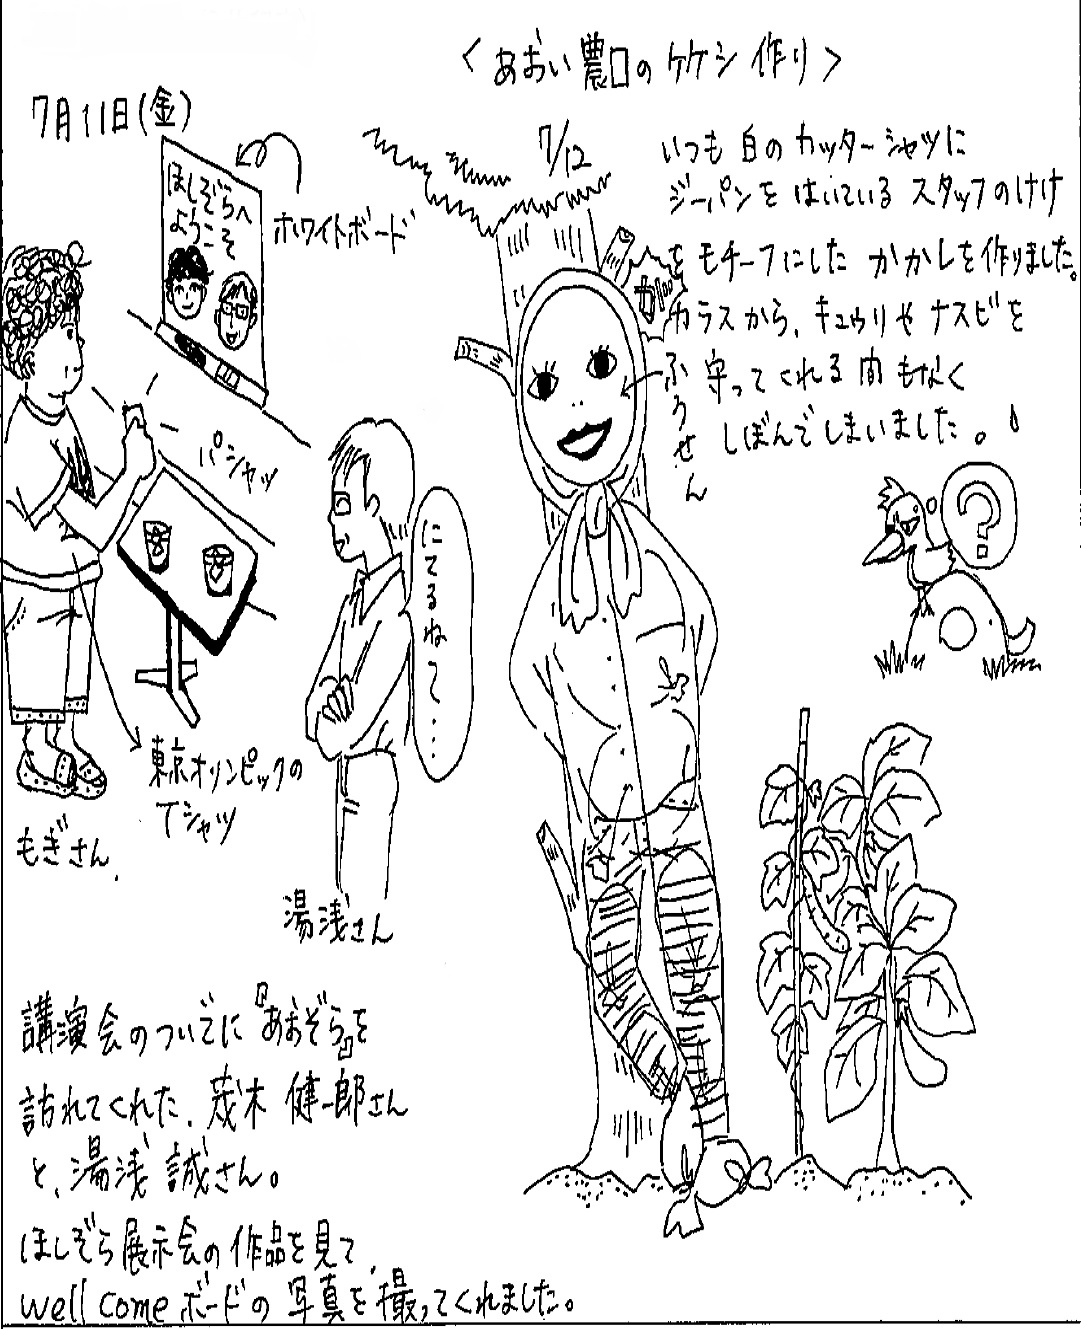 <あおい農口のケケシ作り>
7月11日(金)
ほしぞらへ
ようこそ
ホワイトボード
パシャッ
にてるねて・・・
東京オリンピックの
Tシャツ
もぎさん.
湯浅さん
講演会のついでに『あおぞら』を
訪れてくれた、茂木健一郎さん
と、湯浅誠さん。
ほしぞら展示会の作品を見て、
well comeボードの写真を撮ってくれました。
7/12
いつも白のカッターシャツに
ジーパンをはいているスタッフのけけ
をモチーフにしたかかしを作りました。
カラスから、キュウリやナスビを
守ってくれる間もなく
しぼんでしまいました。
ふうせん
?